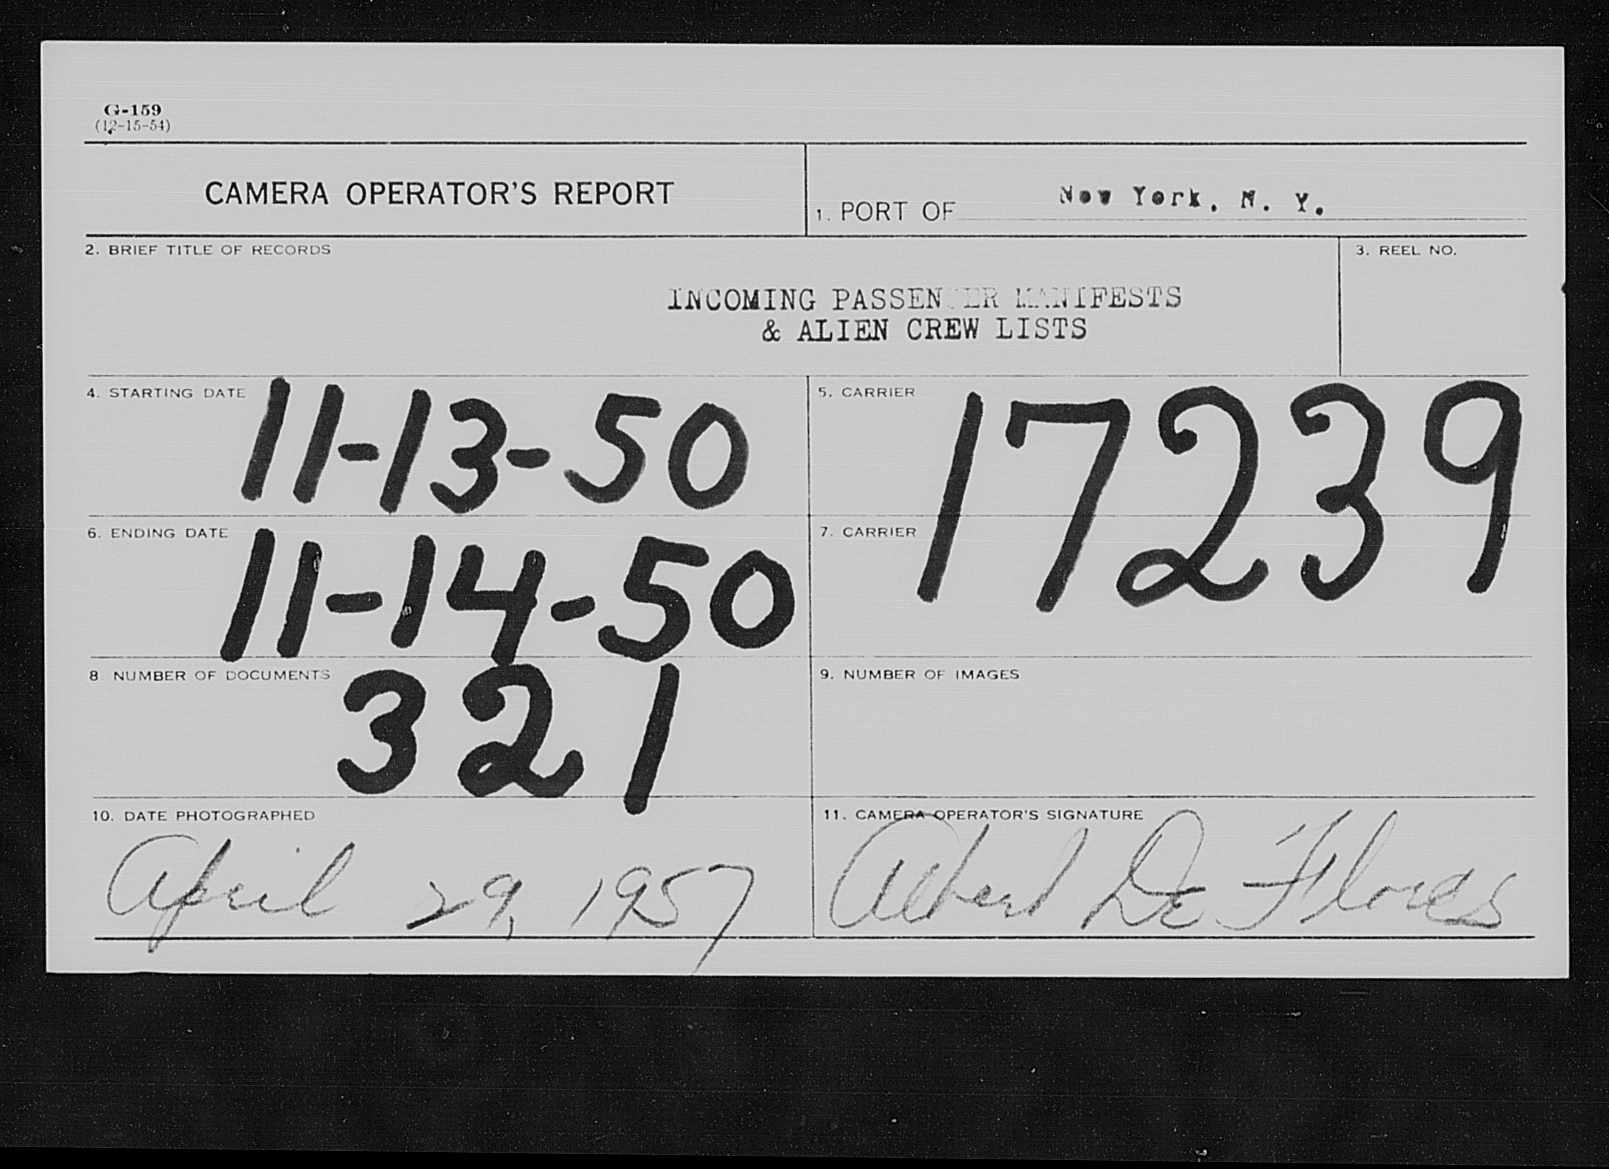 G-159
(12-15-54)
CAMERA OPERATOR'S REPORT
1. PORT OF New York, N. Y.
2. BRIEF TITLE OF RECORDS
3. REEL NO.
INCOMING PASSENGER MANIFESTS
& ALIEN CREW LISTS
4. STARTING DATE 11-13-50
5. CARRIER 17239
6. ENDING DATE 11-14-50
7. CARRIER
8 NUMBER OF DOCUMENTS 321
9. NUMBER OF IMAGES
10. DATE PHOTOGRAPHED
April 29, 1957
11. CAMERA OPERATOR'S SIGNATURE
Albert De Flores